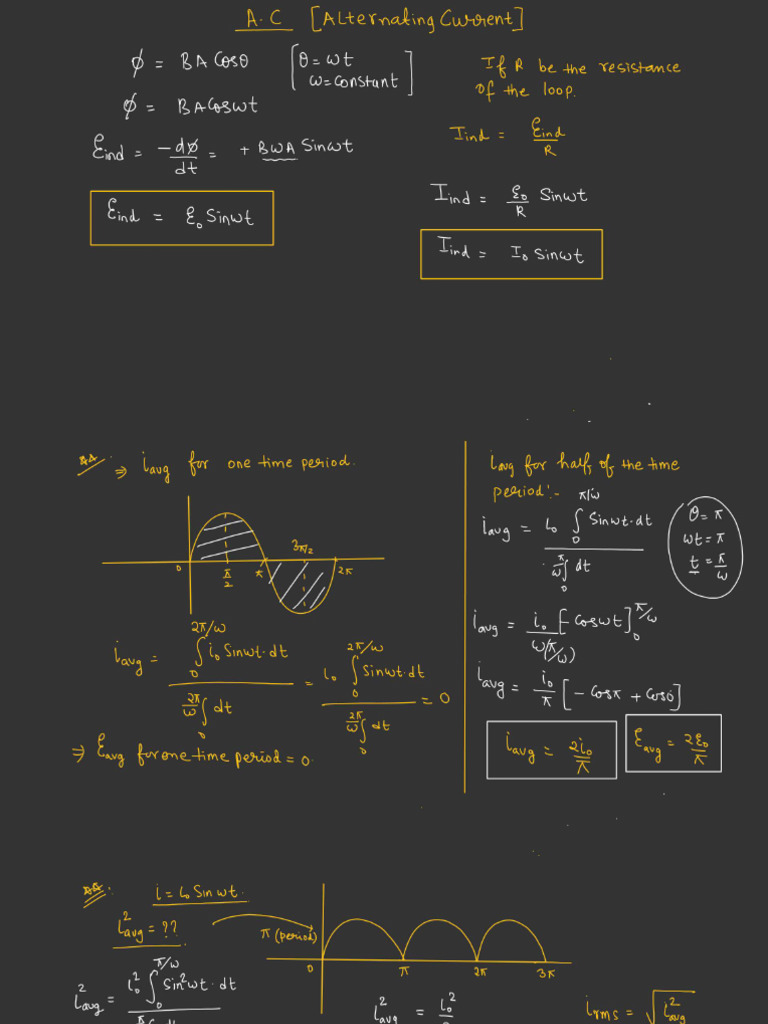 A.C [Alternating Current]
ϕ = BA Cosθ [θ = ωt
ω = constant]
ϕ = BA Cosωt
Ɛind = -dϕ/dt = + BωA Sinωt
Ɛind = Ɛ₀ Sinωt
If R be the resistance
of the loop.
Iind = Ɛind/R
Iind = Ɛ₀/R Sinωt
Iind = I₀ Sinωt
⇒ iavg for one time period.
0 π/2 π 3π/2 2π
iavg = ∫₀^(2π/ω) i₀ Sinωt·dt / ∫₀^(2π/ω) dt = i₀ ∫₀^(2π/ω) Sinωt·dt / ∫₀^(2π/ω) dt = 0
⇒ Ɛavg for one time period = 0.
iavg for half of the time
period:-
iavg = i₀ ∫₀^(π/ω) Sinωt·dt / ∫₀^(π/ω) dt
θ = π
ωt = π
t = π/ω
iavg = i₀/ω(π/ω) [-Cosωt]₀^(π/ω)
iavg = i₀/π [-Cosπ + Cos0]
iavg = 2i₀/π
Ɛavg = 2Ɛ₀/π
i = i₀ Sinωt.
i²avg = ??
π (period)
0 π 2π 3π
i²avg = i₀² ∫₀^(π/ω) Sin²ωt·dt
i²avg = i₀²
irms = √i²avg